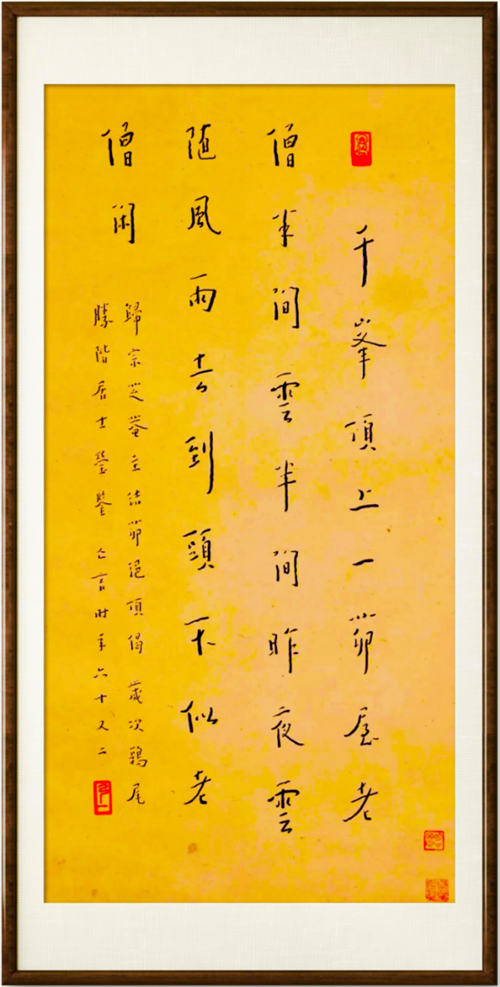 千峯頂上一茆屋老
僧半間雲半間昨夜雲
随風雨去到頭不似老
僧閑
歸宗芝菴主結茆絕頂偈歲次鶉尾
勝階居士瑩鑒亡言時年六十又二